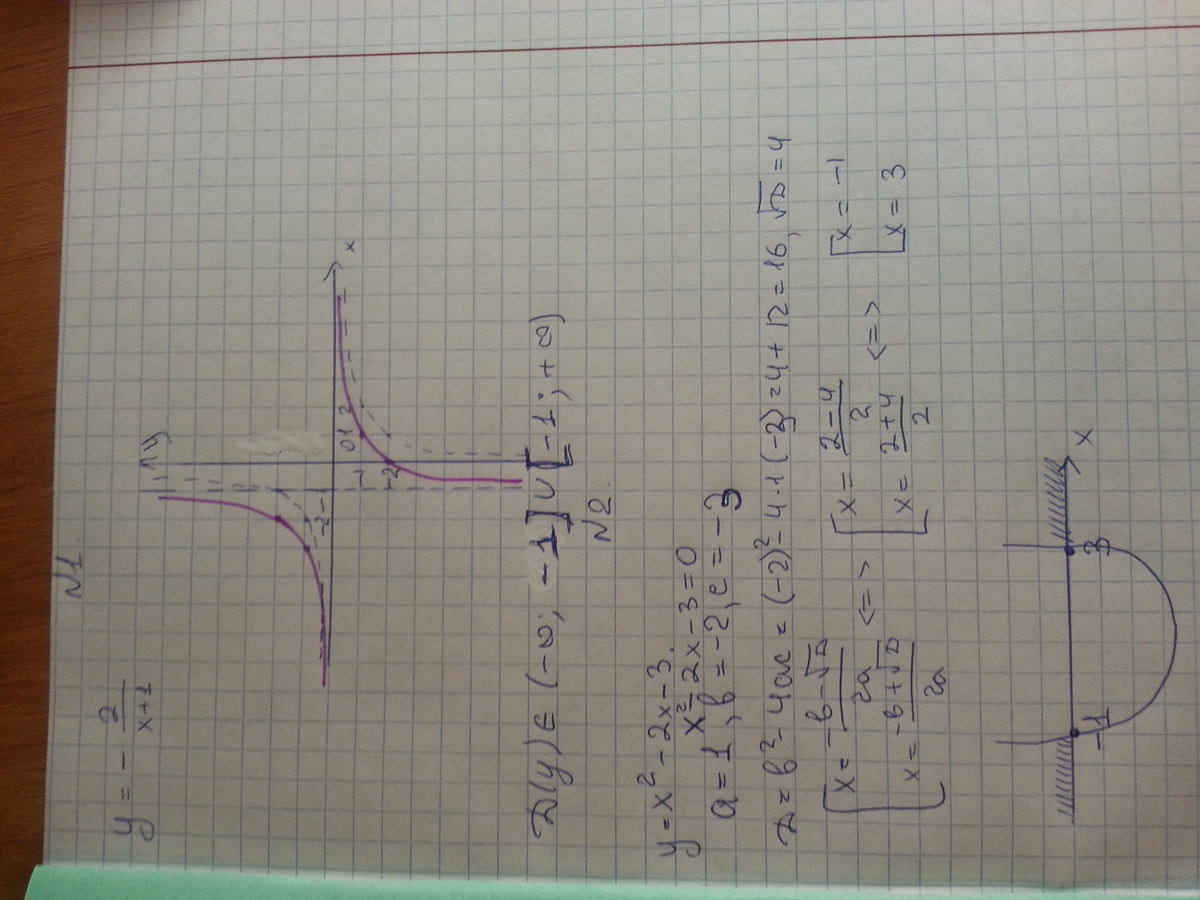 №1
y = - 2/(x+1)
y
0 1 2 x
-2 -1
-1
-2
D(y) ∈ (-∞; -1] ∪ [-1; +∞)
№2
y = x² - 2x - 3.
x² - 2x - 3 = 0
a = 1, b = -2, c = -3
D = b² - 4ac = (-2)² - 4·1·(-3) = 4 + 12 = 16, √D = 4
[x = (-b-√D)/2a <=> [x = (2-4)/2 <=> [x = -1
[x = (-b+√D)/2a [x = (2+4)/2 [x = 3
-1 3 x